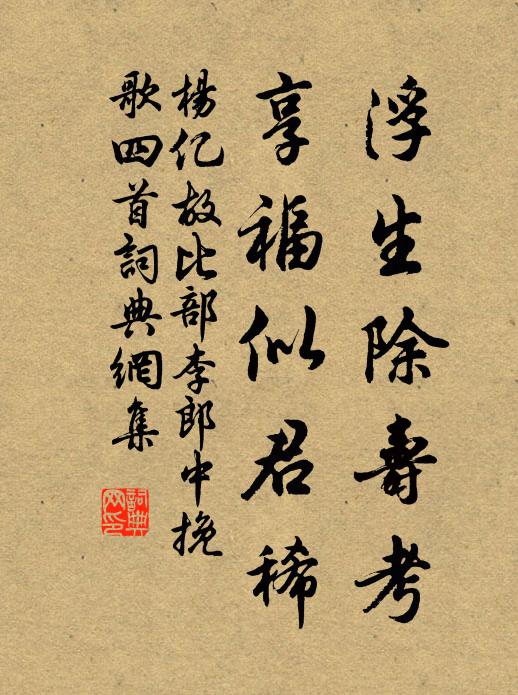 浮生除壽考
享福似君稀
楊亿故比部李郎中挽
歌四首詞典網集
詞典
网印